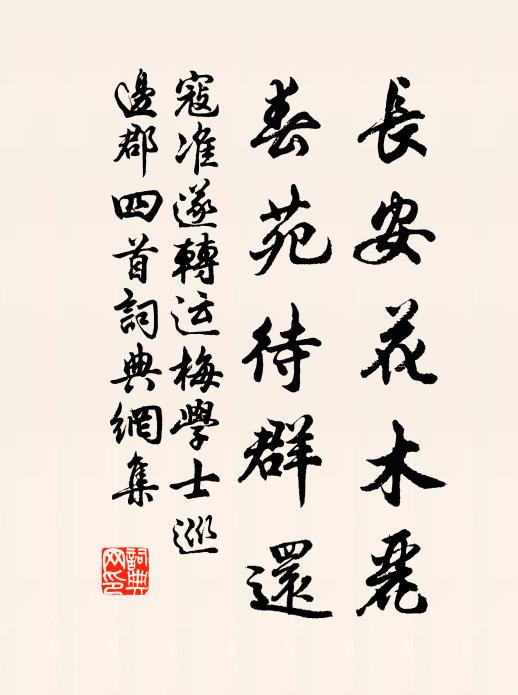 長安花木麗
春苑待群還
寇准送轉运梅學士巡
邊郡四首詞典網集
詞典
网印